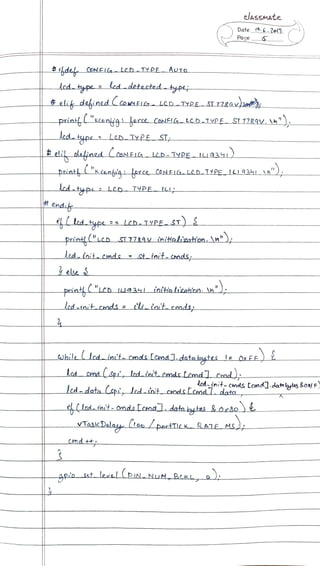 classmate
Date 19.6.2017
Page 5
#ifdef CONFIG_LCD_TYPE_AUTO
lcd_type = lcd_detected_type;
#elif defined (CONFIG_LCD_TYPE_ST7789V)
printf("kconfig: force CONFIG_LCD_TYPE_ST7789V.\n");
lcd_type = LCD_TYPE_ST;
#elif defined (CONFIG_LCD_TYPE_ILI9341)
printf("kconfig: force CONFIG_LCD_TYPE_ILI9341.\n");
lcd_type = LCD_TYPE_ILI;
#endif
if (lcd_type == LCD_TYPE_ST) {
printf("LCD ST7789V initialization.\n");
lcd_init_cmds = st_init_cmds;
} else {
printf("LCD ILI9341 initialization.\n");
lcd_init_cmds = ili_init_cmds;
}
while (lcd_init_cmds[cmd].databytes != 0xFF) {
lcd_cmd (spi, lcd_init_cmds[cmd].cmd);
lcd_init_cmds[cmd].databytes & 0x1F)
lcd_data (spi, lcd_init_cmds[cmd].data,
if (lcd_init_cmds[cmd].databytes & 0x80) {
vTaskDelay (100 / portTICK_RATE_MS);
cmd++;
}
gpio_set_level (PIN_NUM_BCKL, 0);
}